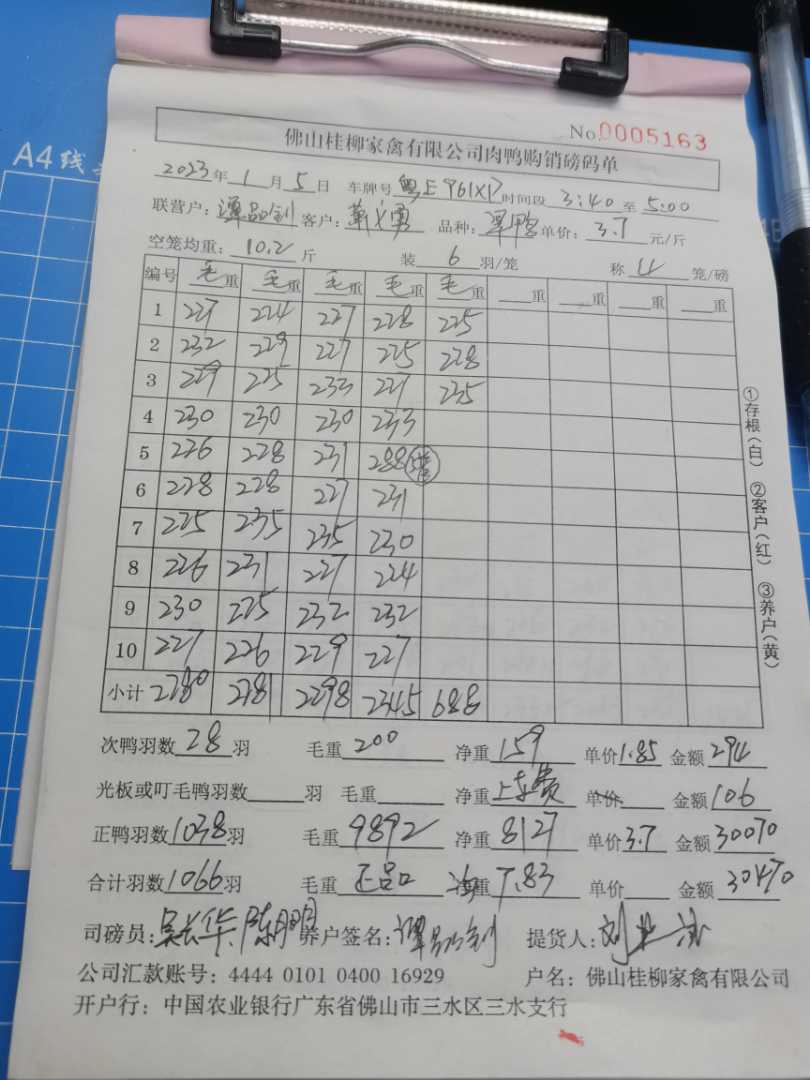 A4
No.0005163
佛山桂柳家禽有限公司肉鸭购销磅码单
2023年1月5日 车牌号 粤E 961XD 时间段 3:40 至 5:00
联营户: 客户: 品种: 单价: 3.7 元/斤
空笼均重: 10.2 斤 装 6 羽/笼 称 4 笼/磅
编号 毛重 毛重 毛重 毛重 毛重 重 重 重 重
1 227 224 227 228 225
2 232 229 227 225 228
3 229 225 233 227 235
4 230 230 230 233
5 226 228 231 288
6 228 228 227 231
7 225 235 235 230
8 226 231 227 224
9 230 225 232 232
10 227 226 229 227
小计 2280 2281 2298 2345 688
①存根(白) ②客户(红) ③养户(黄)
次鸭羽数 28 羽 毛重 200 净重 159 单价 1.85 金额 294
光板或叮毛鸭羽数 羽 毛重 净重 上车费 单价 金额 106
正鸭羽数 1038 羽 毛重 9892 净重 8127 单价 3.7 金额 30070
合计羽数 1066 羽 毛重 正品 净重 7.83 单价 金额 30470
司磅员: 养户签名: 提货人:
公司汇款账号: 4444 0101 0400 16929 户名: 佛山桂柳家禽有限公司
开户行: 中国农业银行广东省佛山市三水区三水支行